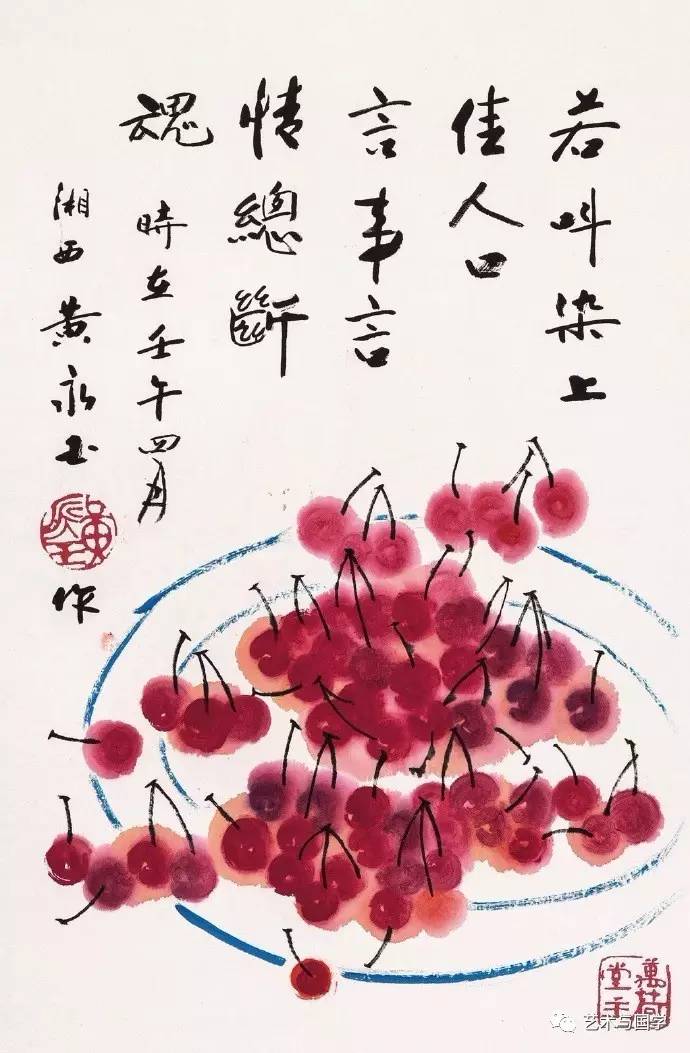 若叫染上
佳人口
言事言
情總斷
魂
時在壬午四月
湘西黄永玉
作
萬荷
堂主
艺术与国学